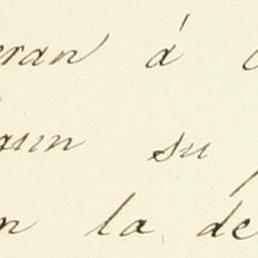 eran á
gun su
n la de